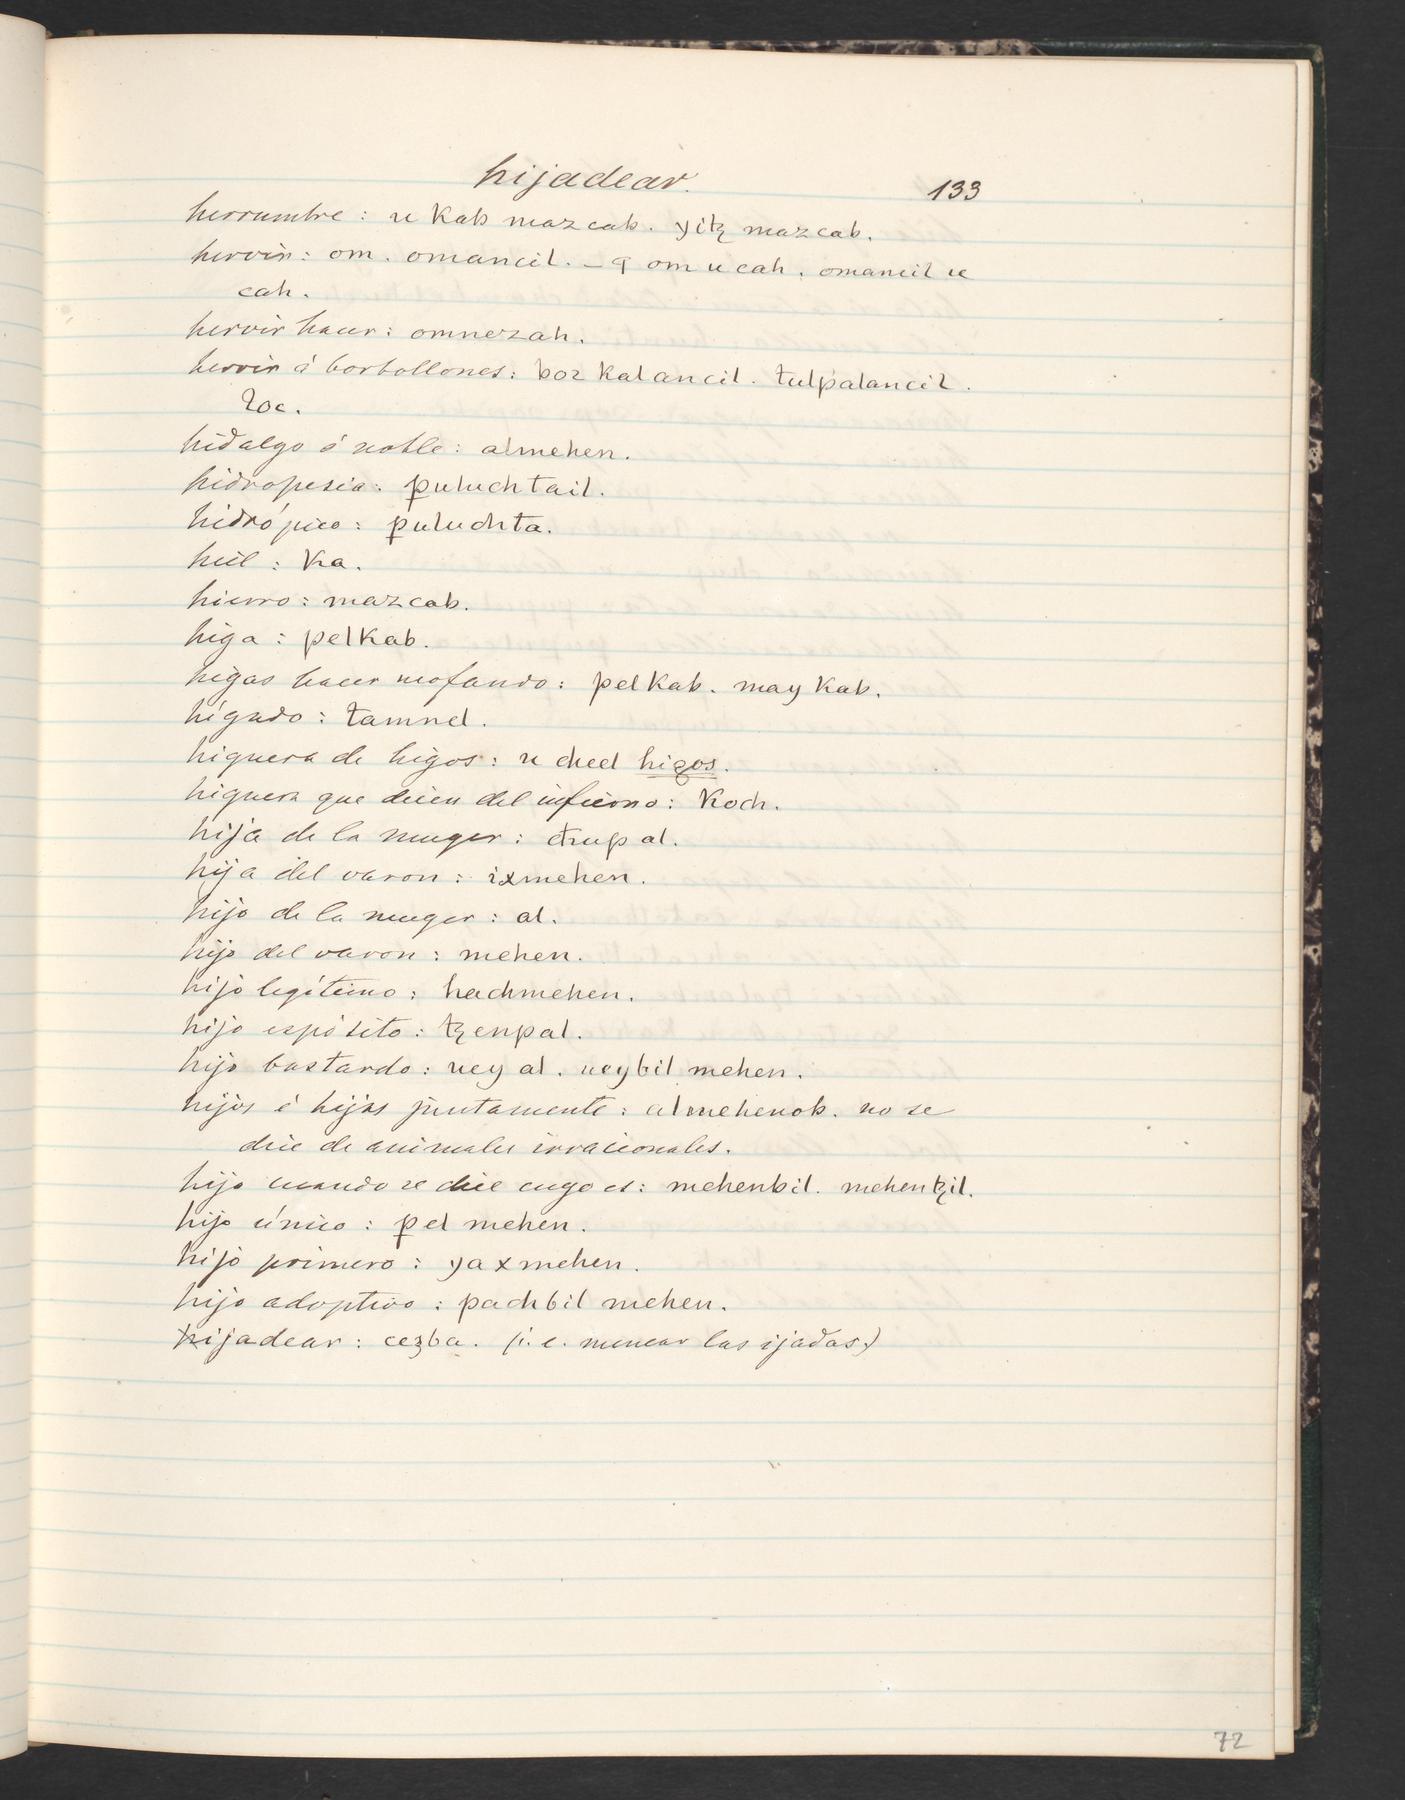 hijadear.
133
herrumbre : u kab mazcab. yitꜩ mazcab.
hervir : om. omancil. – q om u cah. omancil u
cah.
hervir hacer : omnezah.
hervir á borbollones : bozkalancil. ŧulpalancil.
loc.
hidalgo ó noble : almehen.
hidropesia : ꝑuluchtail.
hidrópico : ꝑuluchta.
hiel : ka.
hierro : mazcab.
higa : pelkab.
higas hacer mofando : pelkab. may kab.
hígado : tamnel.
higuera de higos : u cheel higos.
higuera que dicen del infierno : koch.
hija de la muger : chupal.
hija del varon : ixmehen.
hijo de la muger : al.
hijo del varon : mehen.
hijo legítimo : hachmehen.
hijo espósito : tꜩenpal.
hijo bastardo : uey al. ueybil mehen.
hijos é hijas juntamente : almehenob. no se
dice de animales irracionales.
hijo cuando se dice cuyo es : mehenbil. mehentꜩil.
hijo único : ꝑel mehen.
hijo primero : yaxmehen.
hijo adoptivo : pachbil mehen.
hijadear : ceꜫba. (i. e. menear las ijadas.)
72